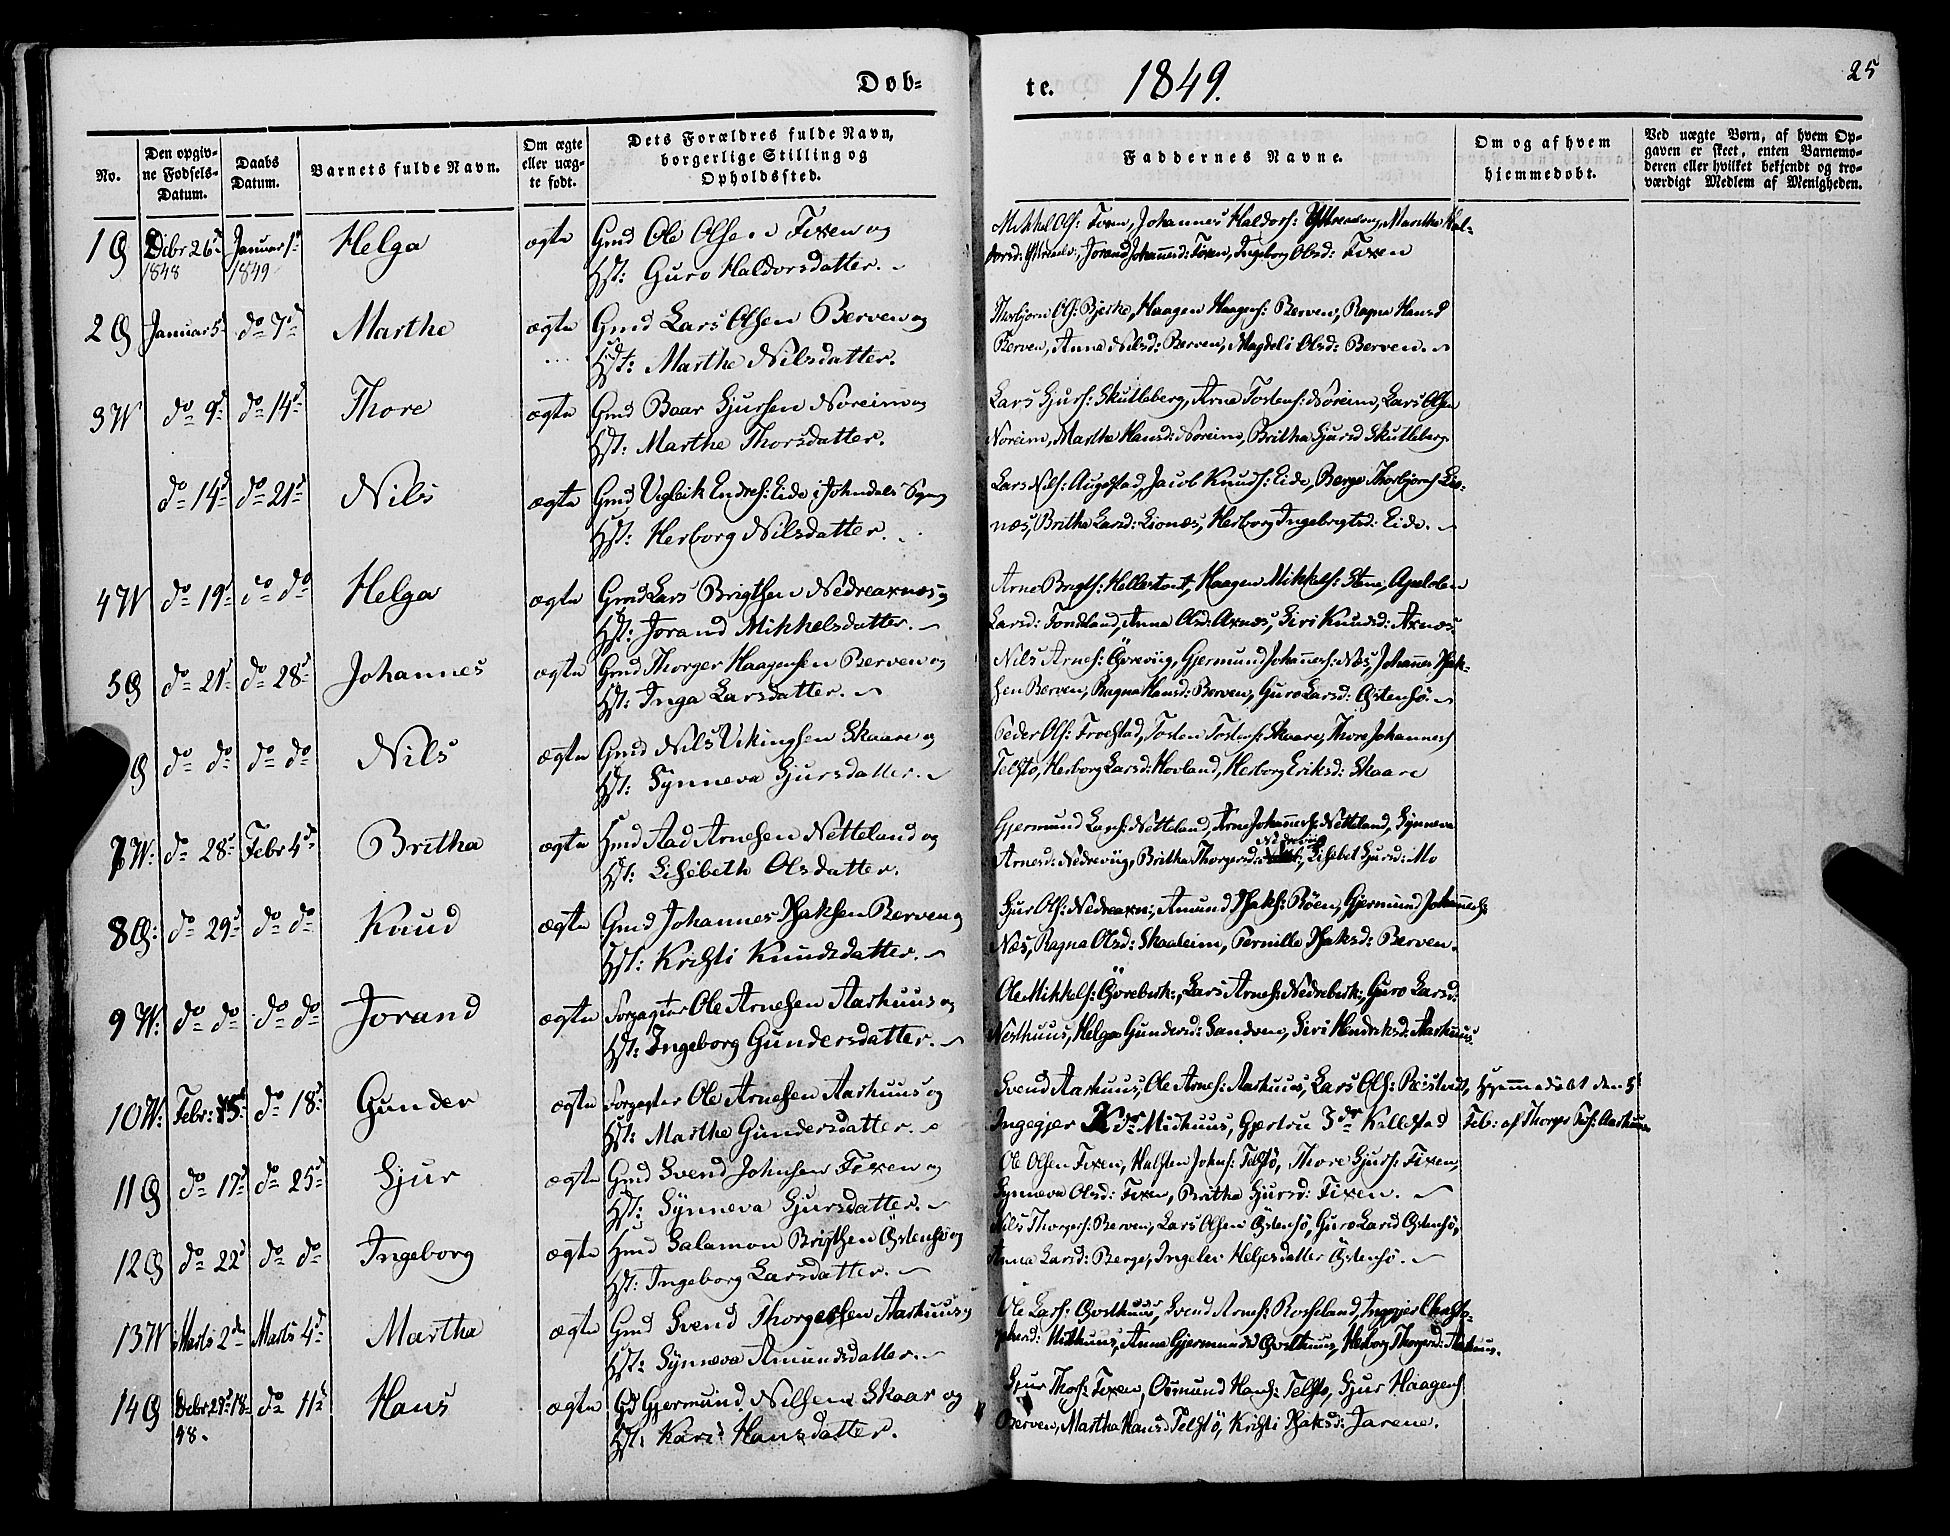 Døb-
te.
1849.
25
No.
Den opgiv-
ne Fødsels-
Datum.
Daabs
Datum.
Barnets fulde Navn.
Om ægte
eller uæg-
te født.
Dets Forældres fulde Navn,
borgerlige Stilling og
Opholdssted.
Faddernes Navne.
Om og af hvem
hjemmedøbt.
Ved uægte Børn, af hvem Op-
gaven er skeet, enten Barnemo-
deren eller hvilket bekjendt og tro-
værdigt Medlem af Menigheden.
1 Debr 26 Januar 1 Helga ægte Gmd Ole Olsen Fixen og
1848 1849 Hst: Guro Haldorsdatter.
Mikkel Ols: Fixen, Johannes Haldors: Martha Hal-
dorsd: Jorand Johannesd: Fixen, Ingeborg Olsd: Fixen
2 Januar 5 do 7d Marthe ægte Gmd Lars Olsen Berven og
Hst: Marthe Nilsdatter.
Thorbjørn Ols: Bjerke, Haagen Haagens: Berven, Ragna Hansd
Berven, Anna Nilsd: Berven, Magdeli Olsd: Berven.
3 do 9d do 14d Thore ægte Gmd Baar Sjursen Noreim og
Hst: Marthe Thorsdatter.
Lars Sjurs: Skutleberg, Arne Tostens: Noreim, Lars Olsen
Noreim, Martha Hansd: Noreim, Britha Sjursd Skutleberg
do 14d do 21d Nils ægte Gmd Vigleik Endres: Eide i Johndals Sogn og
Hst: Herborg Nilsdatter.
Lars Nils: Augestad, Jacob Knuds: Eide, Berge Thorbjørns Lio-
næs, Britha Larsd: Lionæs, Herborg Ingebrigtsd: Eide.
4 do 19d do do Helga ægte Gmd Lars Brigthsen Nedreaxnæs og
Hst: Jorand Mikkelsdatter.
Arne Brigts: Hellestvet, Haagen Mikkels: Steine, Apelolen
Larsd: Tondland, Anna Olsd: Axnæs, Siri Knudsd: Axnæs.
5 do 21d do 28d Johannes ægte Gmd Thorger Haagensen Berven og
Hst: Inga Larsdatter.
Nils Arnes: Øvreviig, Gjermund Johannes: Næs, Johannes Isak-
sen Berven, Ragna Hansd: Berven, Guro Larsd: Østensø.
do do do do Nils ægte Gmd Nils Vikingsen Skaare og
Hst: Synneva Sjursdatter.
Peder Ols: Froestad, Tosten Tostens: Skaare, Thore Johannes
Telstø, Herborg Larsd: Hovland, Herborg Eriksd: Skaare
7 do 28d Febr 4d Britha ægte Hmd Aad Arnesen Netteland og
Hst: Lisebeth Olsdatter.
Gjermund Lars: Netteland, Arne Johannes: Netteland, Synneva
Nedreviig
Arnesd: Nedreviig, Britha Thorgersd: Lisebet Sjursd: Mo
8 do 29d do do Knud ægte Gmd Johannes Isaksen Berven og
Hst: Kristi Knudsdatter.
Sjur Ols: Nedreaxn:, Amund Isaks: Røen, Gjermund Johannes:
Næs, Ragna Olsd: Skaaleim, Pernille Isaksd: Berven.
9 do do do do Jorand ægte Forpagter Ole Arnesen Aarhuus og
Hst: Ingeborg Gundersdatter.
Ole Mikkels: Øvreberk:, Lars Arnes: Nedreberk:, Guro Larsd:
Nesthuus, Helga Gundersd: Sandven, Siri Hendriksd: Aarhuus.
10 Febr: 15d do 18d Gunder ægte Forpagter Ole Arnesen Aarhuus og
Hst: Marthe Gundersdatter.
Svend Aarhuus, Ole Arnes: Aarhuus, Lars Ols: Reistvedt, Hjemmedøbt den 5
Ingegjer dr Midhuus, Gjertru dr Kallestad Feb: af Thorge Aarhuus
11 do 17d do 25d Sjur ægte Gmd Svend Johnsen Fixen og
Hst: Synneva Sjursdatter.
Ole Olsen Fixen, Halsten Johns: Telstø, Thore Sjurs: Fixen,
Synneva Olsd: Fixen, Britha Sjursd: Fixen.
12 do 22d do do Ingeborg ægte Hmd Salamon Brigthsen Østensø og
Hst: Ingeborg Larsdatter.
Nils Thorgers: Berven, Lars Olsen Østensø, Guro Larsd Østensø,
Anna Larsd: Berge, Ingelev Helgesdatter Østensø.
13 Marts 2den Marts 4d Martha ægte Gmd Svend Thorgersen Aarhuus og
Hst: Synneva Amundsdatter.
Ole Lars: Øvsthuus, Svend Arnes: Rosseland, Ingegjer Christo-
phersd: Midhuus, Anna Gjermundsd Øvsthuus, Herborg Thorgersd: Aarhuus.
14 Debr 29d 18 do 11d Hans ægte Gd Gjermund Nilsen Skaar og
48. Hst: Kari Hansdatter.
Sjur Thors: Fixen, Osmund Hans: Telstø, Sjur Haagens
Berven, Martha Hansd Telstø, Kristi Isaksd: Jarene.